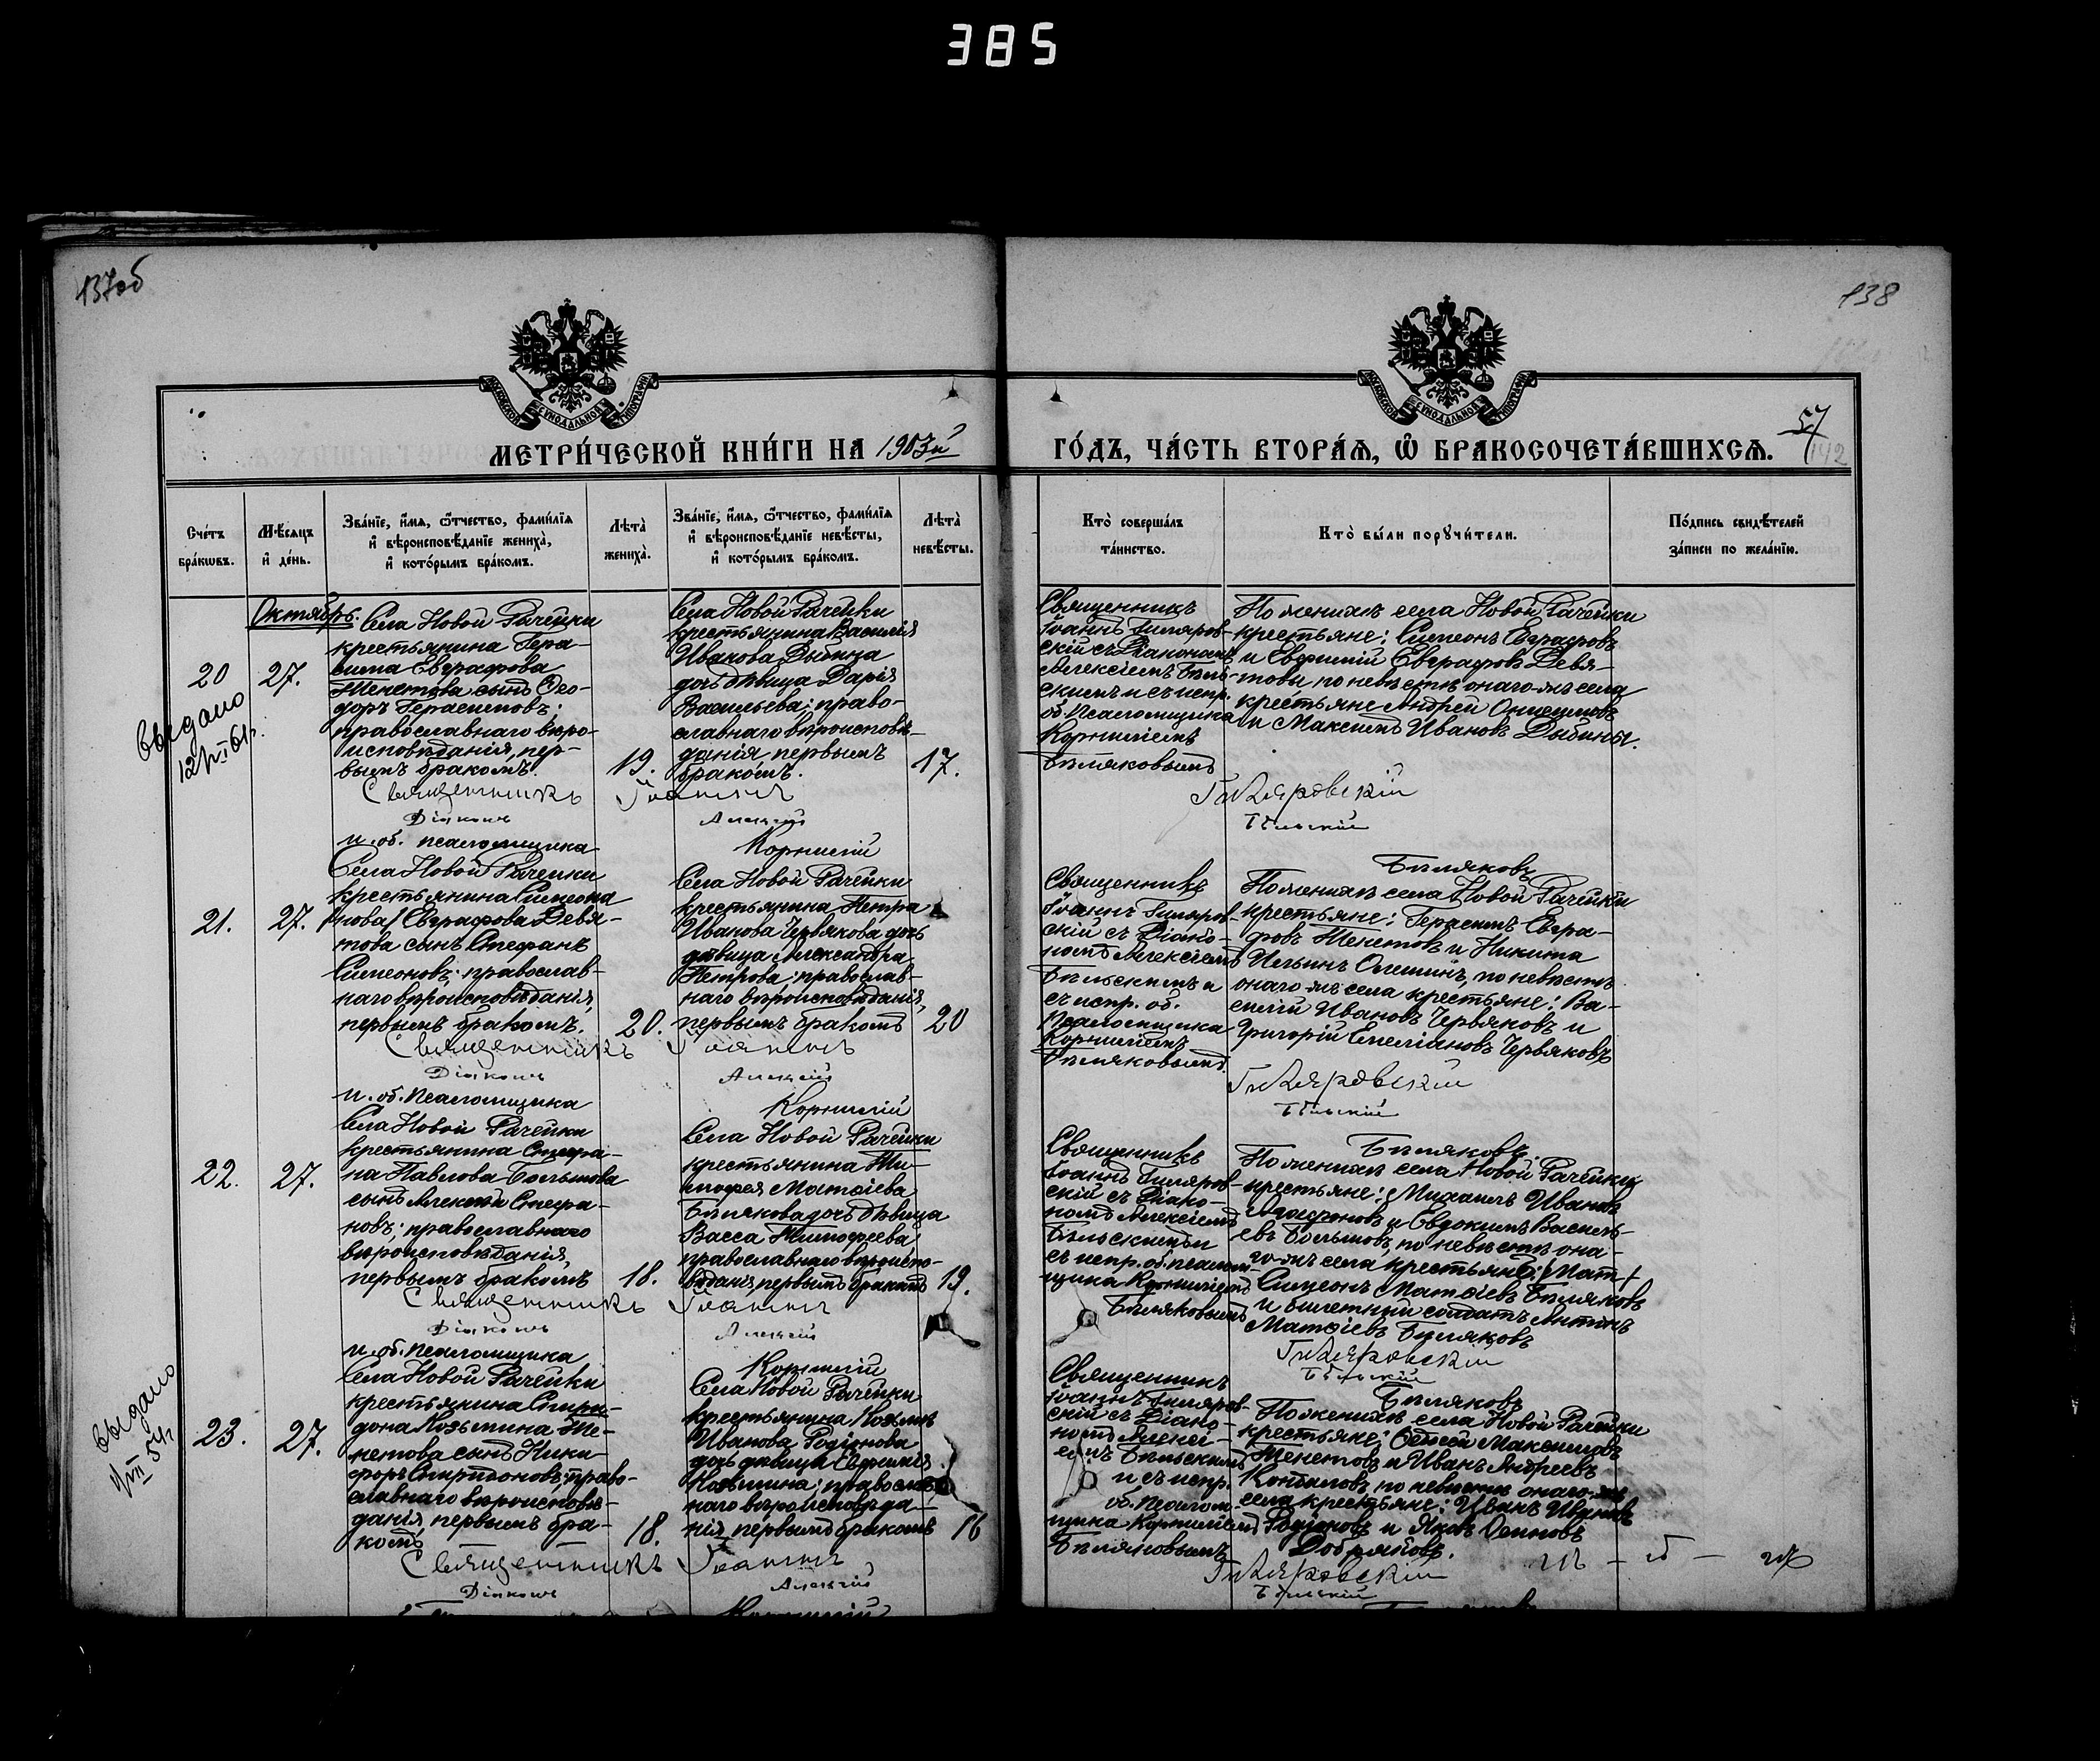 385
137об
138
МОСКОВСКОЙ СѴНОДАЛЬНОЙ ТИПОГРАФІИ
МОСКОВСКОЙ СѴНОДАЛЬНОЙ ТИПОГРАФІИ
МЕТРИ́ЧЕСКОЙ КНИ́ГИ НА 1903й
ГО́ДЪ, ЧА́СТЬ ВТОРА́Ѧ, Ѽ БРАКОСОЧЕТА́ВШИХСѦ.
57
142
Сче́тъ бра́кѡвъ.
Мѣ́сѧцъ и҆ де́нь.
Зва́нїе, и҆́мѧ, ѻ҆́тчество, фами́лїѧ и҆ вѣроисповѣ́данїе жениха̀, и҆ кото́рымъ бра́комъ.
Лѣта̀ жениха̀.
Зва́нїе, и҆́мѧ, ѻ҆́тчество, фами́лїѧ и҆ вѣроисповѣ́данїе невѣ́сты, и҆ кото́рымъ бра́комъ.
Лѣта̀ невѣ́сты.
Кто̀ соверша́лъ та́инство.
Кто̀ бы́ли порꙋчи́тели.
По́дпись свидѣ́телей за́писи по жела́нїю.
Октябрь.
20
27.
выдано
Села Новой Рачейки
крестьянина Гера-
сима Евграфова
Тенетова сынъ Ѳео-
доръ Герасимовъ;
православнаго вѣро-
исповѣданія, пер-
вымъ бракомъ.
19.
Села Новой Рачейки
крестьянина Василія
Иванова Дыбина
дочь дѣвица Дарія
Васильева; право-
славнаго вѣроисповѣ-
данія первымъ
бракомъ.
17.
Священникъ
Іоаннъ Гиляров-
скій съ Діакономъ
Алексіемъ Бѣль-
скимъ и съ испр.
об. Псаломщика
Корниліемъ
Бѣляковымъ
По женихѣ села Новой Рачейки
крестьяне: Симеонъ Евграфовъ
и Евфимій Евграфовъ Девя-
товы по невѣстѣ онаго-же села
крестьяне Андрей Онисимовъ
и Максимъ Ивановъ Дыбины.
Священникъ Іоаннъ Гиляровскій
Діаконъ Алексій Бѣльскій
и. об. псаломщика Корнилій Бѣляковъ
21.
27.
Села Новой Рачейки
крестьянина Симеона
Евграфова Девя-
това сынъ Стефанъ
Симеоновъ; православ-
наго вѣроисповѣданія,
первымъ бракомъ.
20.
Села Новой Рачейки
крестьянина Петра
Иванова Червякова дочь
дѣвица Александра
Петрова; православ-
наго вѣроисповѣданія,
первымъ бракомъ
20
Священникъ
Іоаннъ Гиляров-
скій съ Діако-
номъ Алексіемъ
Бѣльскимъ и
съ испр. об.
Псаломщика
Корниліемъ
Бѣляковымъ.
По женихѣ села Новой Рачейки
крестьяне: Герасимъ Евгра-
фовъ Тенетовъ и Никита
Ильинъ Олешинъ, по невѣстѣ
онаго-же села крестьяне: Ва-
силій Ивановъ Червяковъ и
Григорій Емеліановъ Червяковъ
Священникъ Іоаннъ Гиляровскій
Діаконъ Алексій Бѣльскій
и. об. Псаломщика Корнилій Бѣляковъ.
22.
27.
Села Новой Рачейки
крестьянина Стефа-
на Павлова Большова
сынъ Стефа-
новъ; православнаго
вѣроисповѣданія,
первымъ бракомъ
18.
Села Новой Рачейки
крестьянина Ти-
мофея Матѳіева
Бѣлякова дочь дѣвица
Васса Тимофеева
православнаго вѣроиспо-
вѣданія, первымъ бракомъ
19.
Священникъ
Іоаннъ Гиляров-
скій съ Діако-
номъ Алексіемъ
Бѣльскимъ и
съ испр. об. псалом-
щика Корниліемъ
Бѣляковымъ
По женихѣ села Новой Рачейки
крестьяне: Михаилъ Ивановъ
и Евдокимъ Василь-
евъ Большовъ, по невѣстѣ она-
го-же села крестьяне:
Симеонъ Матѳіевъ Бѣляковъ
и билетный солдатъ Антонъ
Матѳіевъ Бѣляковъ
Священникъ Іоаннъ Гиляровскій
Діаконъ Алексій Бѣльскій
и. об. Псаломщика Корнилій Бѣляковъ
23.
27.
выдано
Села Новой Рачейки
крестьянина Спири-
дона Козьмина Те-
нетова сынъ Ники-
форъ Спиридоновъ; право-
славнаго вѣроисповѣ-
данія, первымъ бра-
комъ
18.
Села Новой Рачейки
крестьянина Козьмы
Иванова Родіонова
дочь дѣвица Евфимія
Козьмина; православ-
наго вѣроисповѣда-
нія первымъ бракомъ
16
Священникъ
Іоаннъ Гиляров-
скій съ Діако-
номъ Алексі-
емъ Бѣльскимъ
и съ испр.
об. Псалом-
щика Корниліемъ
Бѣляковымъ
По женихѣ села Новой Рачейки
крестьяне: Максимовъ
Тенетовъ и Иванъ Андреевъ
по невѣстѣ онаго-же
села крестьяне: Иванъ Ивановъ
Родіоновъ и Яковъ Осиповъ
Добряковъ.
Священникъ Іоаннъ Гиляровскій
Діаконъ Алексій Бѣльскій
Корнилій